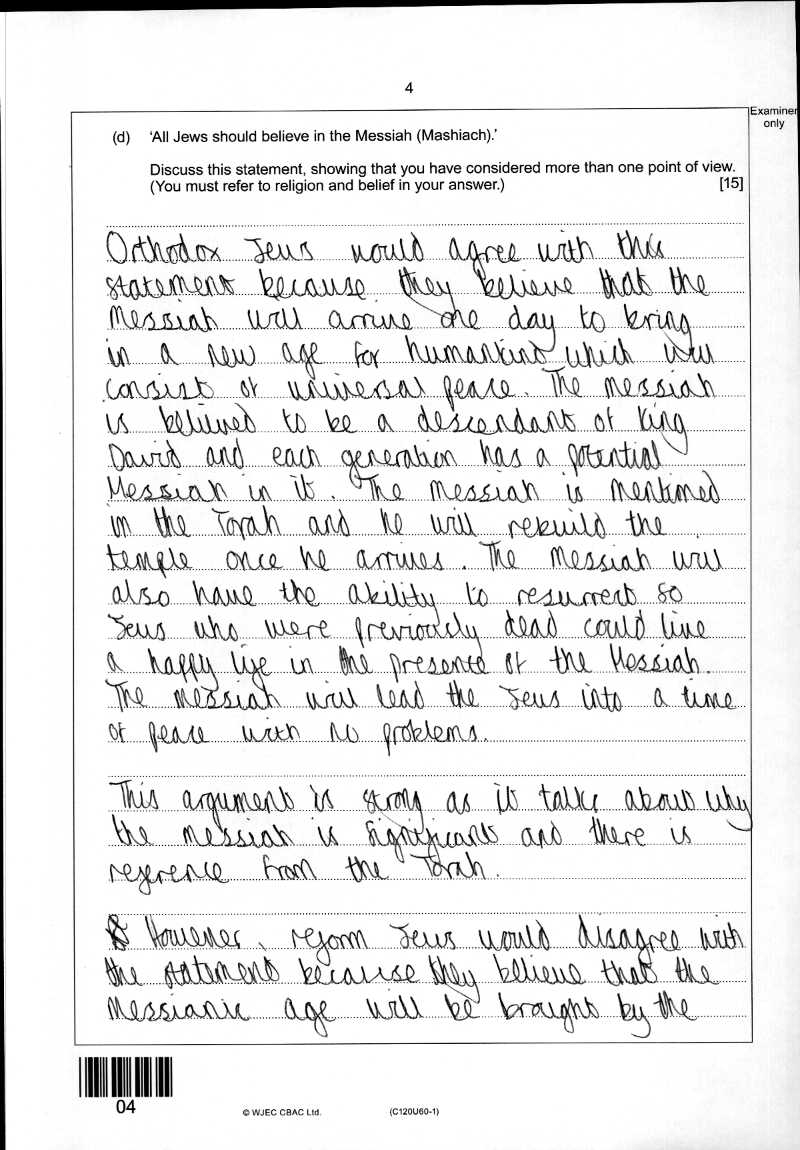 4
Examiner
only
(d) 'All Jews should believe in the Messiah (Mashiach).'
Discuss this statement, showing that you have considered more than one point of view.
(You must refer to religion and belief in your answer.) [15]
Orthodox Jews would agree with this
statement because they believe that the
Messiah will arrive one day to bring
in a new age for humankind which will
consist of universal peace. The messiah
is believed to be a descendant of King
David and each generation has a potential
Messiah in it. The messiah is mentioned
in the Torah and he will rebuild the
temple once he arrives. The messiah will
also have the ability to resurrect so
Jews who were previously dead could live
a happy life in the presente of the Messiah.
The messiah will lead the Jews into a time
of peace with no problems.
This argument is strong as it talks about why
the messiah is significant and there is
reference from the Torah.
However, reform Jews would disagree with
the statement because they believe that the
Messianic age will be brought by the
04
© WJEC CBAC Ltd.
(C120U60-1)